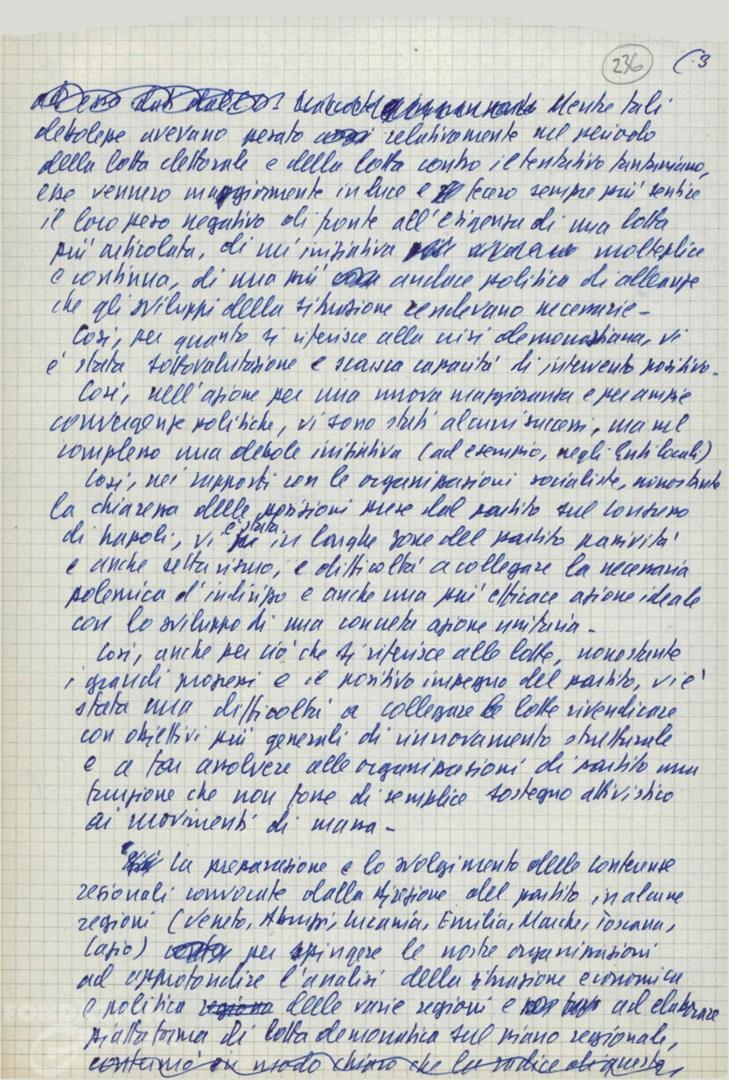 236 (3
Mentre tali
debolezze avevano pesato relativamente nel periodo
della lotta elettorale e della lotta contro il tentativo fanfaniano,
esse vennero maggiormente in luce e fecero sempre più sentire
il loro peso negativo di fronte all'esigenza di una lotta
più articolata, di un'iniziativa molteplice
e continua, di una più audace politica di alleanze
che gli sviluppi della situazione rendevano necessarie -
Così, per quanto si riferisce alla crisi democristiana, vi
è stata sottovalutazione e scarsa capacità di intervento positivo.
Così, nell'azione per una nuova maggioranza e per ampie
convergenze politiche, vi sono stati alcuni successi, ma nel
complesso una debole iniziativa (ad esempio, negli Enti locali)
Così, nei rapporti con le organizzazioni socialiste, nonostante
la chiarezza delle posizioni prese dal partito sul Congresso
di Napoli, vi è stata in larghe zone del partito passività
e anche settarismo, e difficoltà a collegare la necessaria
polemica d'indirizzo e anche una più efficace azione ideale
con lo sviluppo di una concreta azione unitaria -
Così, anche per ciò che si riferisce alle lotte, nonostante
i grandi progressi e il positivo impegno del partito, vi è
stata una difficoltà a collegare le lotte rivendicative
con obiettivi più generali di rinnovamento strutturale
e a far assolvere alle organizzazioni di partito una
funzione che non fosse di semplice sostegno attivistico
ai movimenti di massa -
La preparazione e lo svolgimento delle conferenze
regionali convocate dalla Direzione del partito in alcune
regioni (Veneto, Abruzzi, Lucania, Emilia, Marche, Toscana,
Lazio) per spingere le nostre organizzazioni
ad approfondire l'analisi della situazione economica
e politica regiona delle varie regioni e ad elaborare
piattaforma di lotta democratica sul piano regionale,
confermò in modo chiaro che la radice di queste